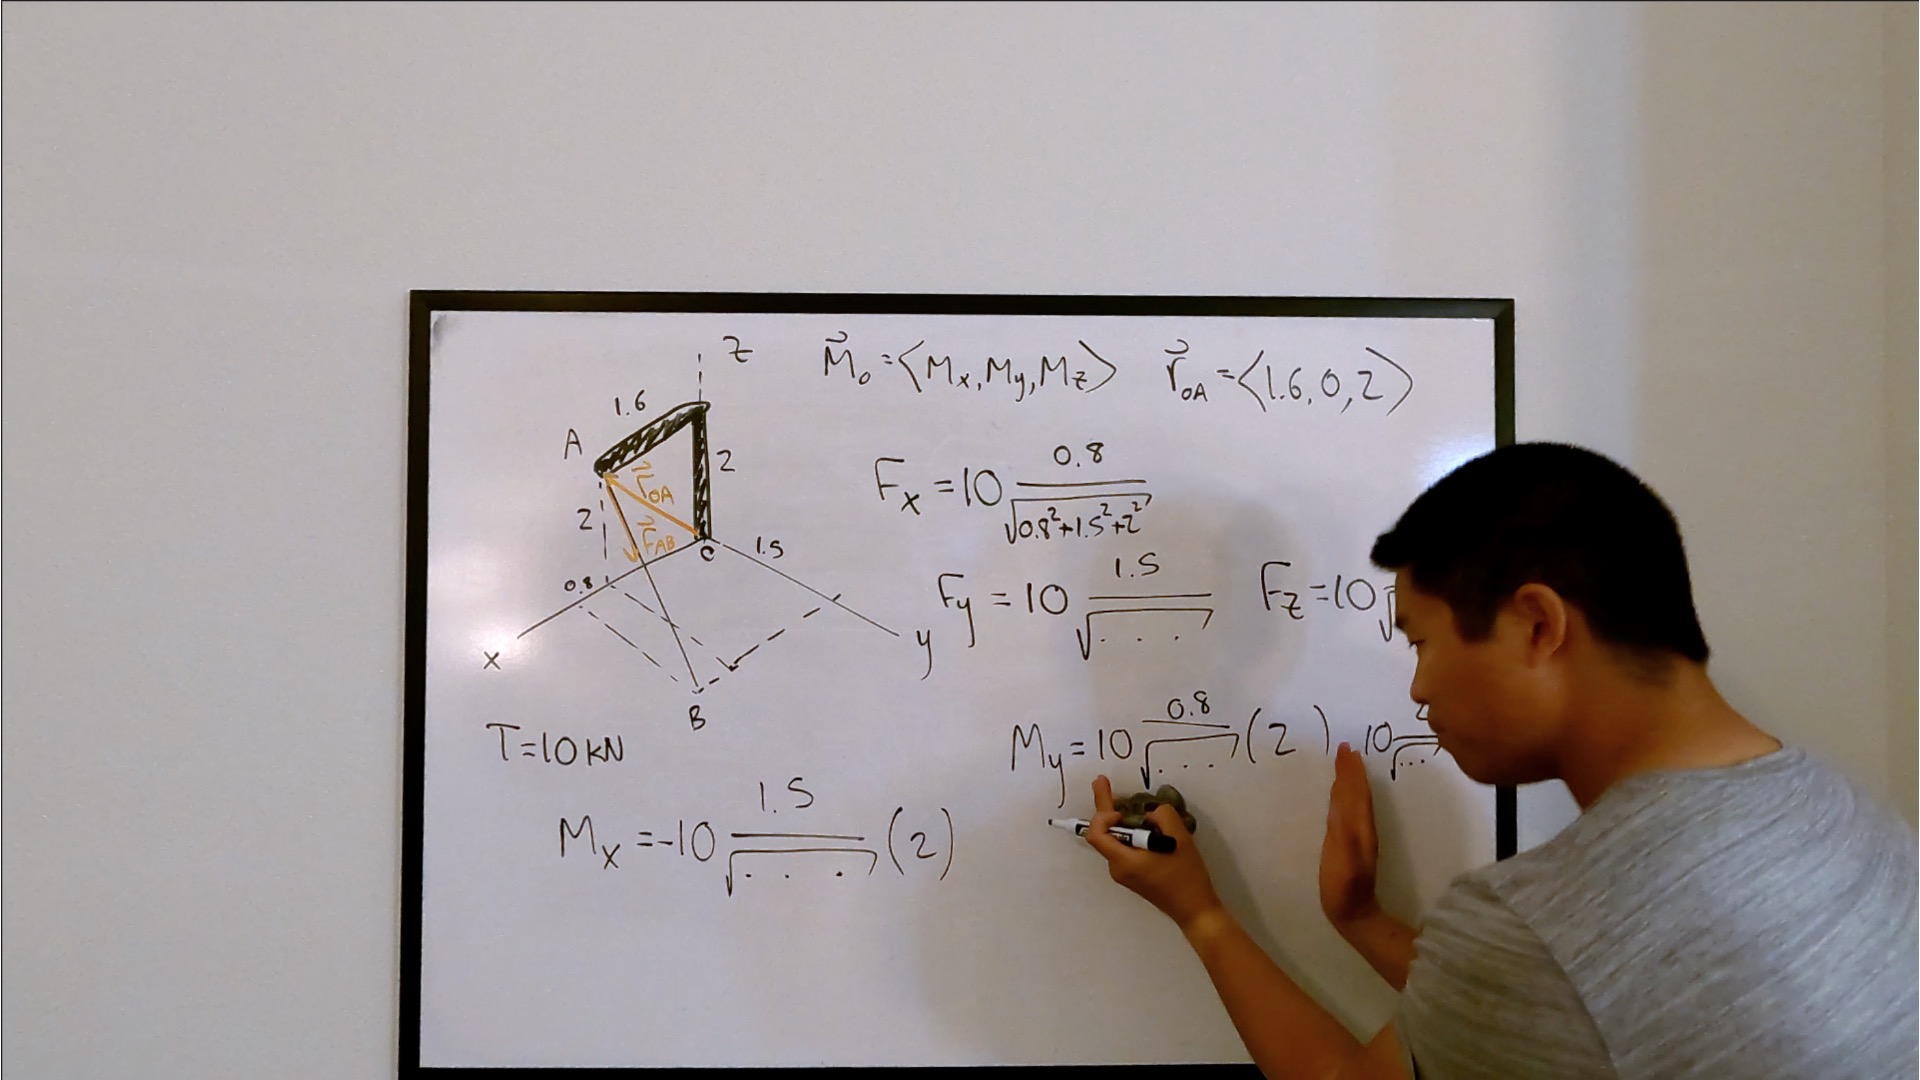 z
M⃗o = <Mx, My, Mz>
r⃗OA = <1.6, 0, 2>
1.6
A
2
r⃗OA
2
F⃗AB
0.8
1.5
x
y
B
T=10 KN
Fx = 10 0.8/√(0.8²+1.5²+2²)
Fy = 10 1.5/√(. . .)
Fz = 10
My = 10 0.8/√(. . .) (2) 10 /√(...)
Mx = -10 1.5/√(. . .) (2)